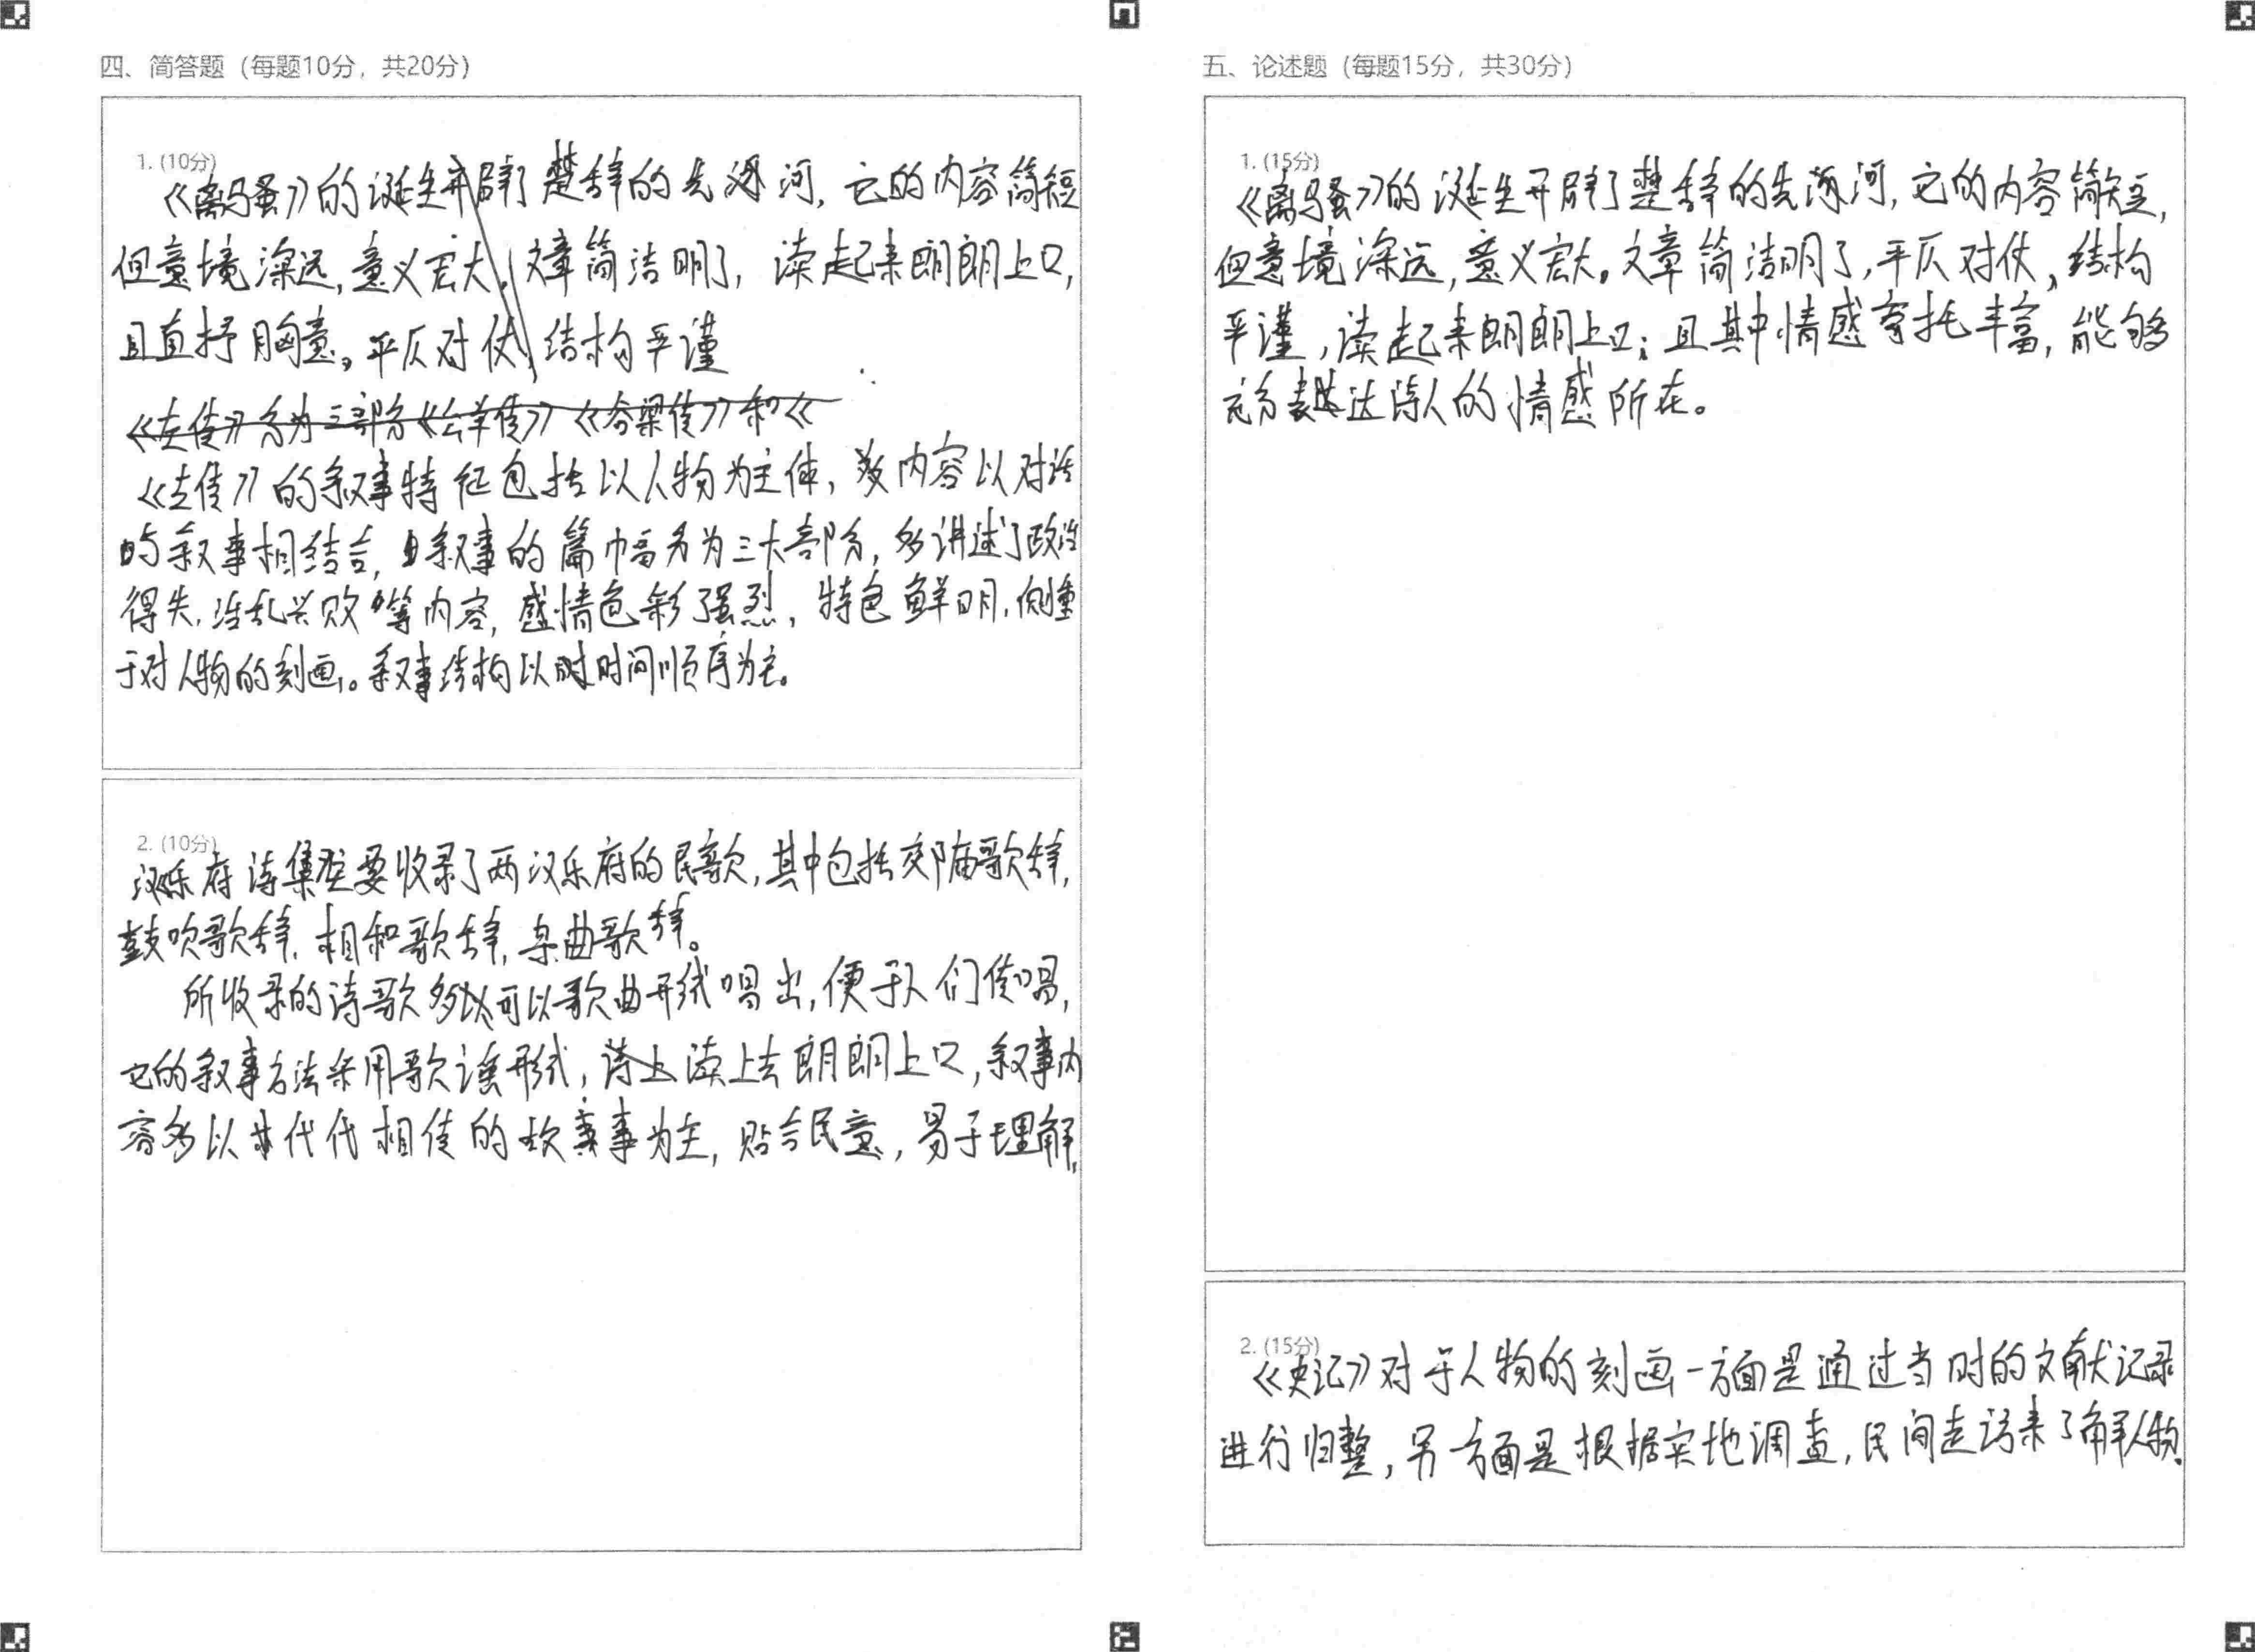 四、简答题（每题10分，共20分）
1. (10分)
《离骚》的诞生开辟了楚辞的先源河，它的内容简短
但意境深远，意义宏大，文章简洁明了，读起来朗朗上口，
且直抒胸意。平仄对仗，结构严谨
《左传》分为三部分《公羊传》《谷梁传》和《
《左传》的叙事特征包括以人物为主体，内容以对话
的叙事相结合，且叙事的篇幅多为三大部分，多讲述了政治
得失，治乱兴败等内容，感情色彩强烈，特色鲜明，侧重
于对人物的刻画。叙事结构以时间顺序为主。
2. (10分)
汉乐府诗集主要收录了两汉乐府的民歌，其中包括郊庙歌辞，
鼓吹歌辞，相和歌辞，杂曲歌辞。
所收录的诗歌多以可以歌曲形式唱出，便于人们传唱，
它的叙事方法采用歌谣形式，读上去朗朗上口，叙事内
容多以代代相传的故事为主，贴合民意，易于理解，
五、论述题（每题15分，共30分）
1. (15分)
《离骚》的诞生开辟了楚辞的先源河，它的内容简短，
但意境深远，意义宏大。文章简洁明了，平仄对仗，结构
严谨，读起来朗朗上口；且其中情感寄托丰富，能够
充分表达诗人的情感所在。
2. (15分)
《史记》对于人物的刻画一方面是通过当时的文献记录
进行归整，另一方面是根据实地调查，民间走访来了解人物。